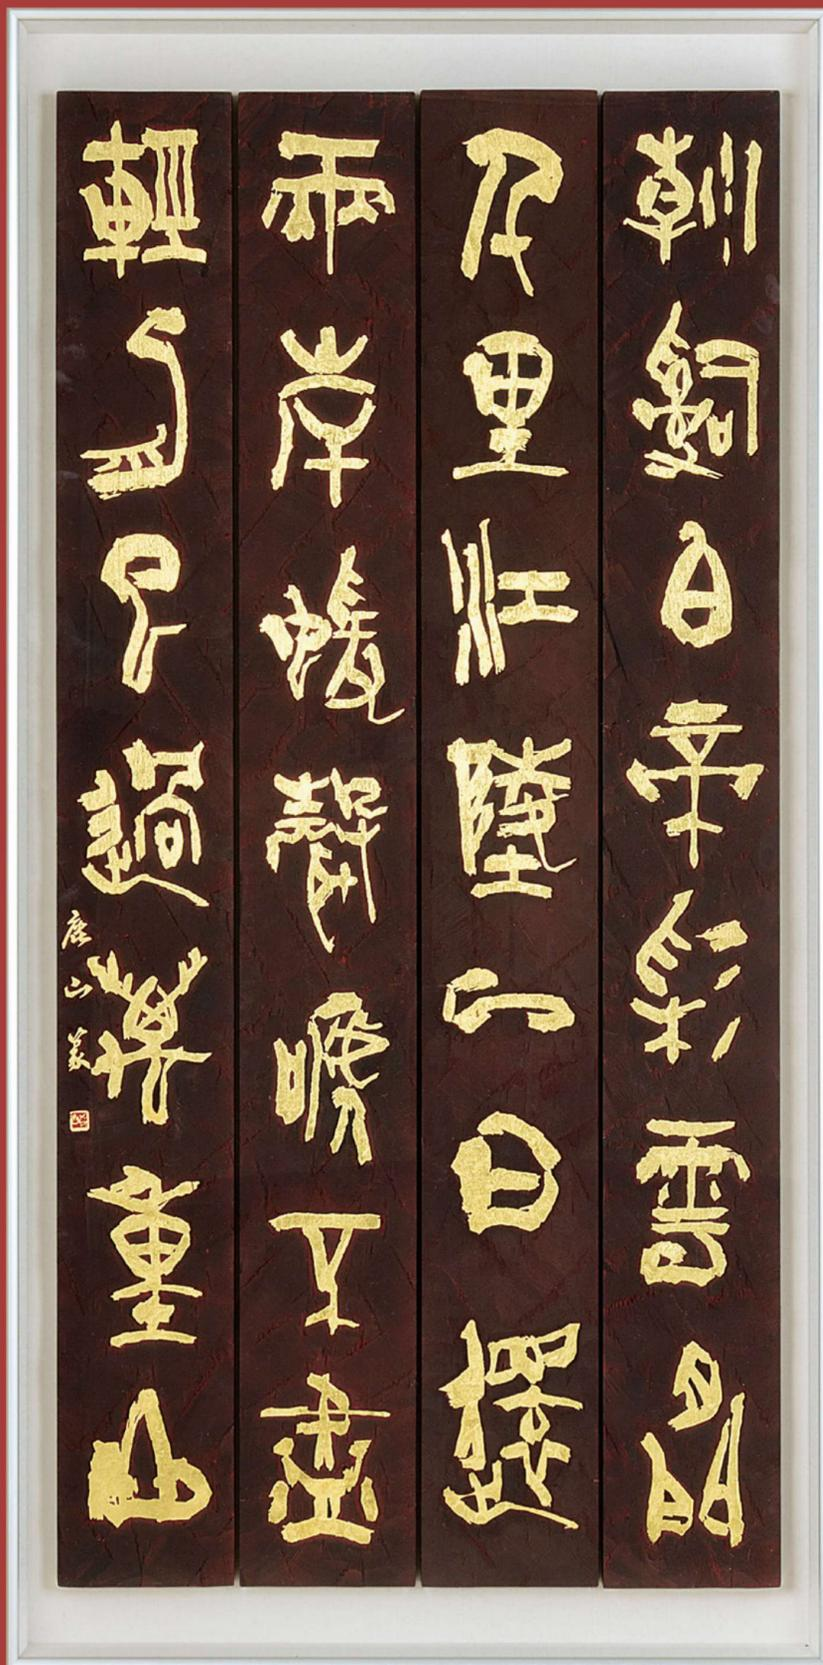 朝辭白帝彩雲間
千里江陵一日還
兩岸蝯聲嗁不盡
輕舟已過萬重山
山篆